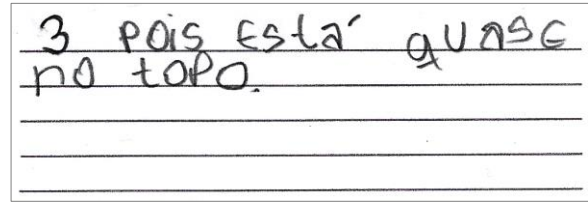 3 pois está quase
no topo.